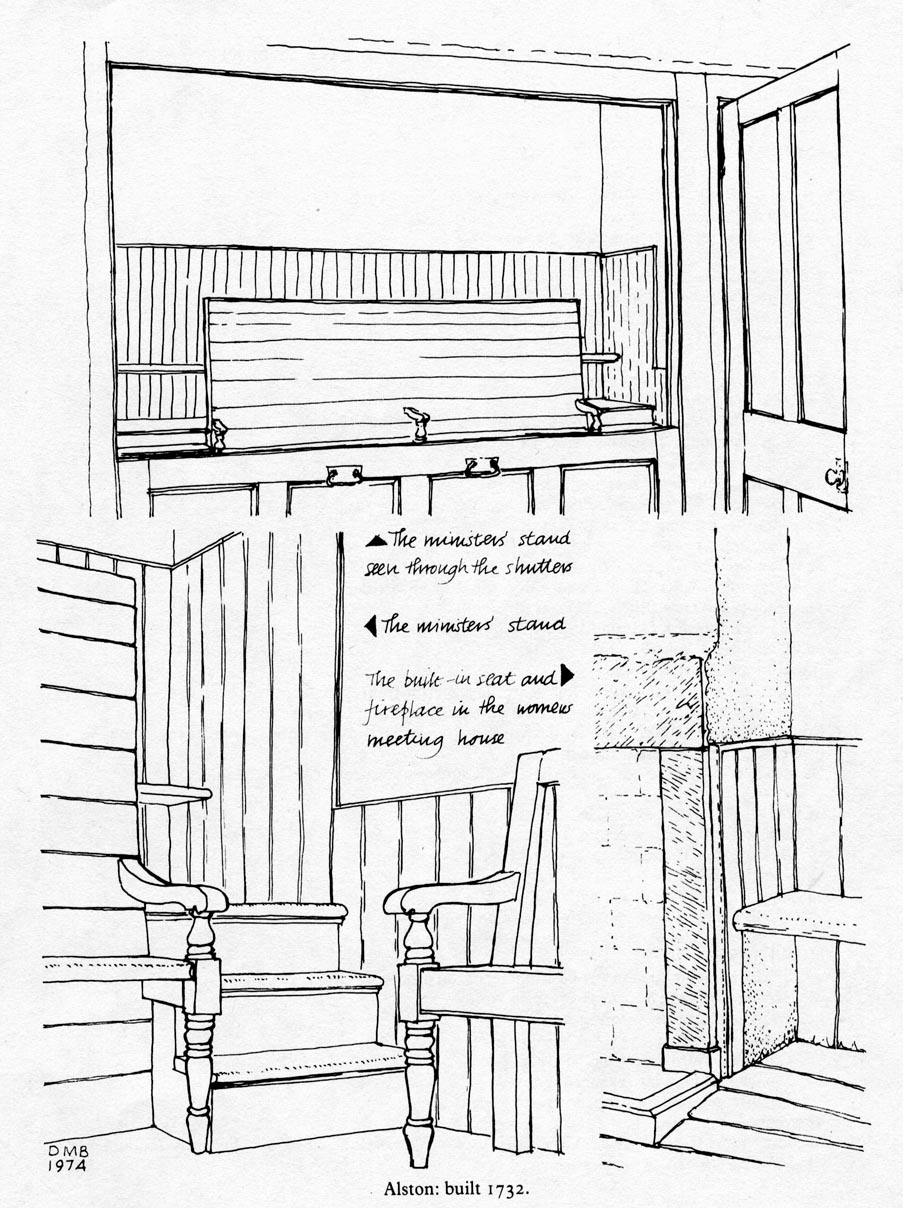 The ministers' stand
seen through the shutters
The ministers' stand
The built-in seat and
fireplace in the womens
meeting house
DMB
1974
Alston: built 1732.